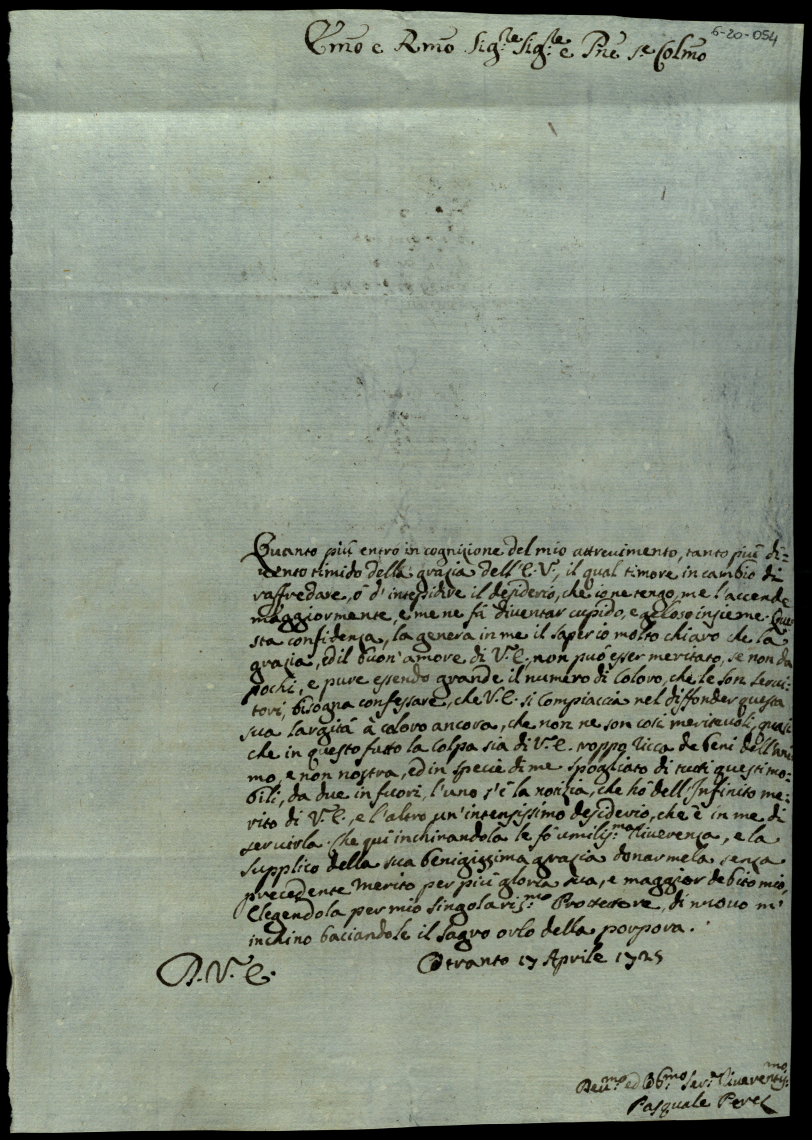 6-20-054
Emõ e Rmõ Sig.re Sig.re e Pñe S.e Colmõ
Quanto più entro in cognizione del mio attrevimento, tanto più di=
uento timido della grazia dell'E.V., il qual timore in cambio di
raffredare, ò d'intepidire il desiderio, che io ne tengo, me l'accende
maggiormente, e me ne fà diventar cupido, e geloso insieme. Que
sta confidenza, la genera in me il saper io molto chiaro che la
grazia, ed il buon'amore di V.E. non può esser meritato, se non da
pochi, e pure essendo grande il numero di coloro, che le son serui=
tori, bisogna confessare, che V.E. si compiaccia nel diffonder questa
sua largità à coloro ancora, che non ne son così meriteuoli, quasi
che in questo fusse la colpa sia di V.E. troppo ricca de beni dell'ani
mo, e non nostra, ed in specie di me spogliato di tutti questi mo=
bili, da due in fuori, l'uno s'è la notizia, che hò dell'Infinito me=
rito di V.E., e l'altro un'intensissimo desiderio, che è in me di
seruirla. Che quì inchinandola le fò umiliss.ma riverenza, e la
supplico della sua benigissima grazia donarmela senza
precedente merito per più gloria sua, e maggior debito mio,
Elegendola per mio singolariss.mo Prottettore, di nuouo m'
inchino baciandole il sagro orlo della porpora.
D.V.E. Otranto 17 Aprile 1725
Deu.mo ed Ob.mo Ser.e riverentis.mo
Pasquale Perez